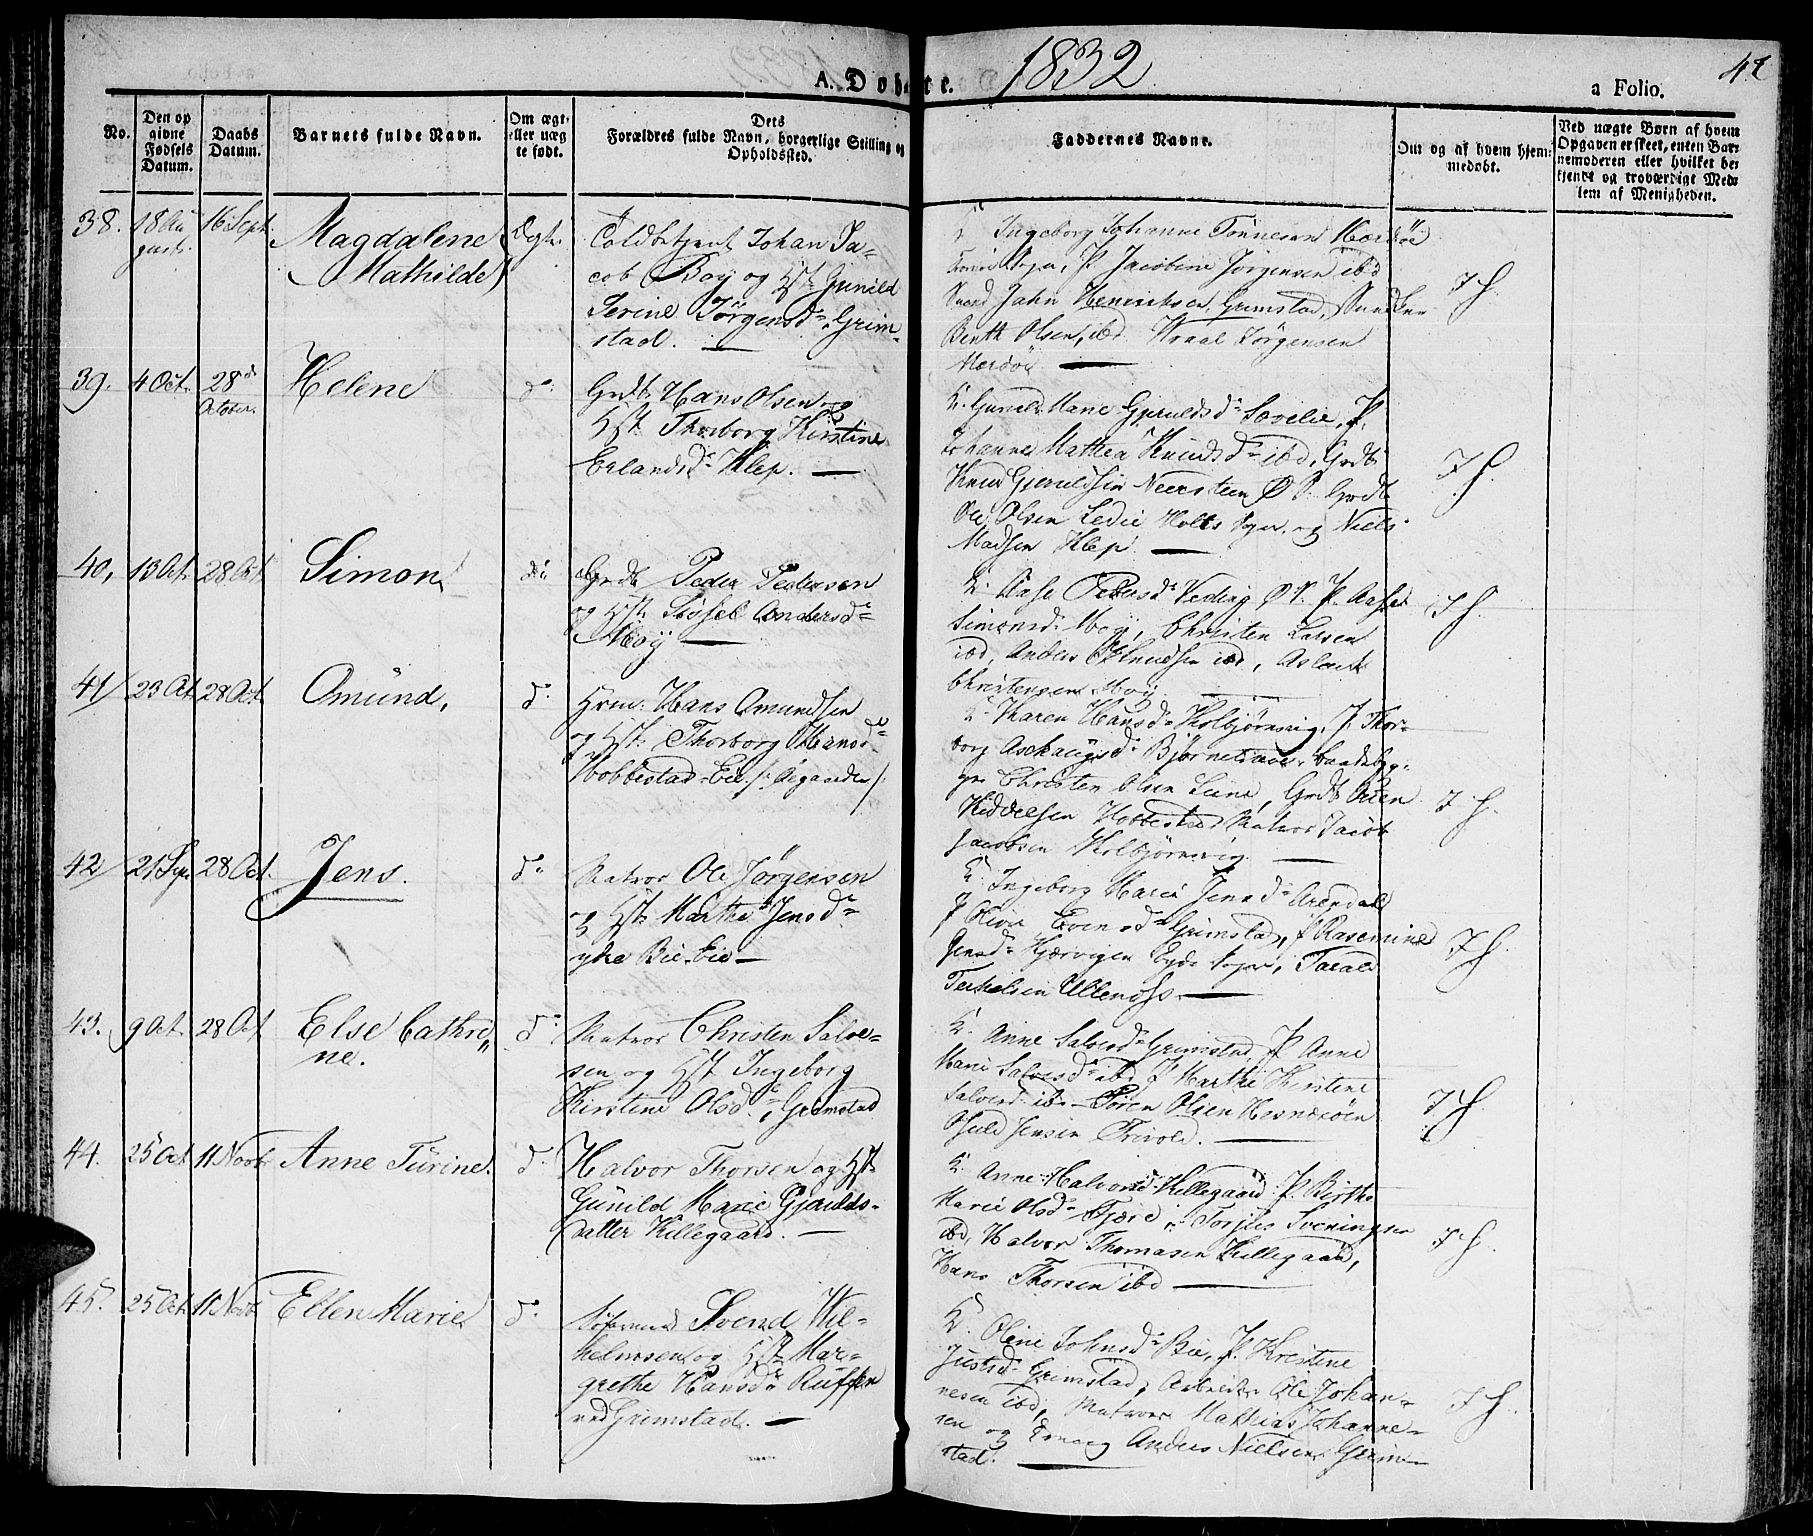 1832
42
A. Døbte.
a Folio.
No.
Den op
givne
Fødsels
Datum.
Daabs
Datum.
Barnets fulde Navn.
Om ægt-
eller uæg
te født.
Dets
Forældres fulde Navn, borgerlige Stilling og
Opholdssted.
Faddernes Navne.
Om og af hvem hjem-
medøbt.
Ved uægte Børn af hvem
Opgaven er skeet, enten Bar-
nemoderen eller hvilket be-
kjendt og troværdigt Med-
lem af Menigheden.
38.
18 Au
gust.
16 Sept.
Magdalene
Mathilde
Ægte
Toldbetjent Johan Ja-
cob Boy og Hst Gunild
Serine Jørgensd. Grim-
stad.
Ingeborg Johanne Tønnesen Mærdøe
Sogn, P. Jacobine Jørgensen ibd
Jahn Henrichsen, Grimstad,
Benth Olsen, ibd. Jørgensen
Mærdøe
39.
4 Oct.
28de
October.
Helene
do
Grdb. Hans Olsen og
Hst. Thorborg Kirstine
Erlandsd. Klep.
K. Gunild Marie Gjeruldsd. P.
Johanne Mathea Knudsd. ibd, Grdb
Knud Gjeruldsen Neersteen Ø S. Grdb
Ole Olsen Ledie Holts Sogn og Niels
Madsen Klep.
40,
13 Oct.
28 Oct.
Simon
do
Grdb Peder Pedersen
og Hst. Sidsel Andersd.
Moy
K. Aase Pedersd. Veding Ø S. P. Aasel
Simonsd. Moy, Christen Larsen
ibd, Anders Knudsen ibd, Aslak
Christensen Moy.
41
23 Oct.
28 Oct.
Omund,
do
Hans Omundsen
og Hst. Thorborg Hansd.
Hobbestad-Eie
K. Karen Hansd. Kolbjørnsvig, P. Thor-
borg Bjørnetrae, Baadebyg-
ger Christen Olsen Lune, Grdb
Kiddelsen Hobbestad Matros Jacob
Jacobsen Kolbjørnsvig.
42
21 Sep.
28 Oct.
Jens.
do
Matros Ole Jørgensen
og Hst. Marthe Jensd.
yhe Bie-Eie
K. Ingeborg Marie Jensd. Arendal
P Olive Evensd. Grimstad, P Rasmine
Jensd. Kjærvigen Eyde Sogn, Tarald
Terkelsen Ullenæs.
43.
9 Oct.
28 Oct
Else Cathri
ne.
do
Matros Christen Salve-
sen og Hst Ingeborg
Kirstine Olsd., Grimstad
K. Anne Salvesd. Grimstad, P Anne
Marie Salvesd. ibd P Marthe Kirstine
Salvesd. ibd Søren Olsen Hesnesøen
Jensen Frivold.
44.
25 Oct.
11 Novbr
Anne Turine.
do
Halvor Thorsen og Hst.
Gunild Marie Gjerulds-
datter Killegaard.
K. Anne Halvorsd. Killegaard. P. Birthe
Marie Olsd. Fjære, Torjus Sveningsen
ibd, Halvor Thomasen Killegaard,
Hans Thorsen ibd
45.
25 Oct.
11 Novb.
Ellen Marie
do
Svend Wil-
helmsen og Hst Mar-
grethe Hansd.
ved Grimstad.
K. Oline Johnsd. Bie, P. Kirstine
Justsd. Grimstad, Arbeider Ole Johan-
nesen ibd, Matros Mathias Johanne-
sen og Anders Nielsen Grim-
stad.